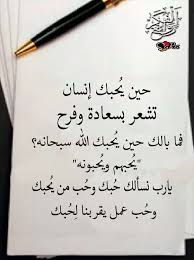 حين يُحبك إنسان
تشعر بسعادة وفرح
فما بالك حين يُحبك الله سبحانه؟
"يُحبهم ويُحبونه"
يارب نسألك حُبك وحُب من يُحبك
وحُب عمل يقربنا لِحُبك